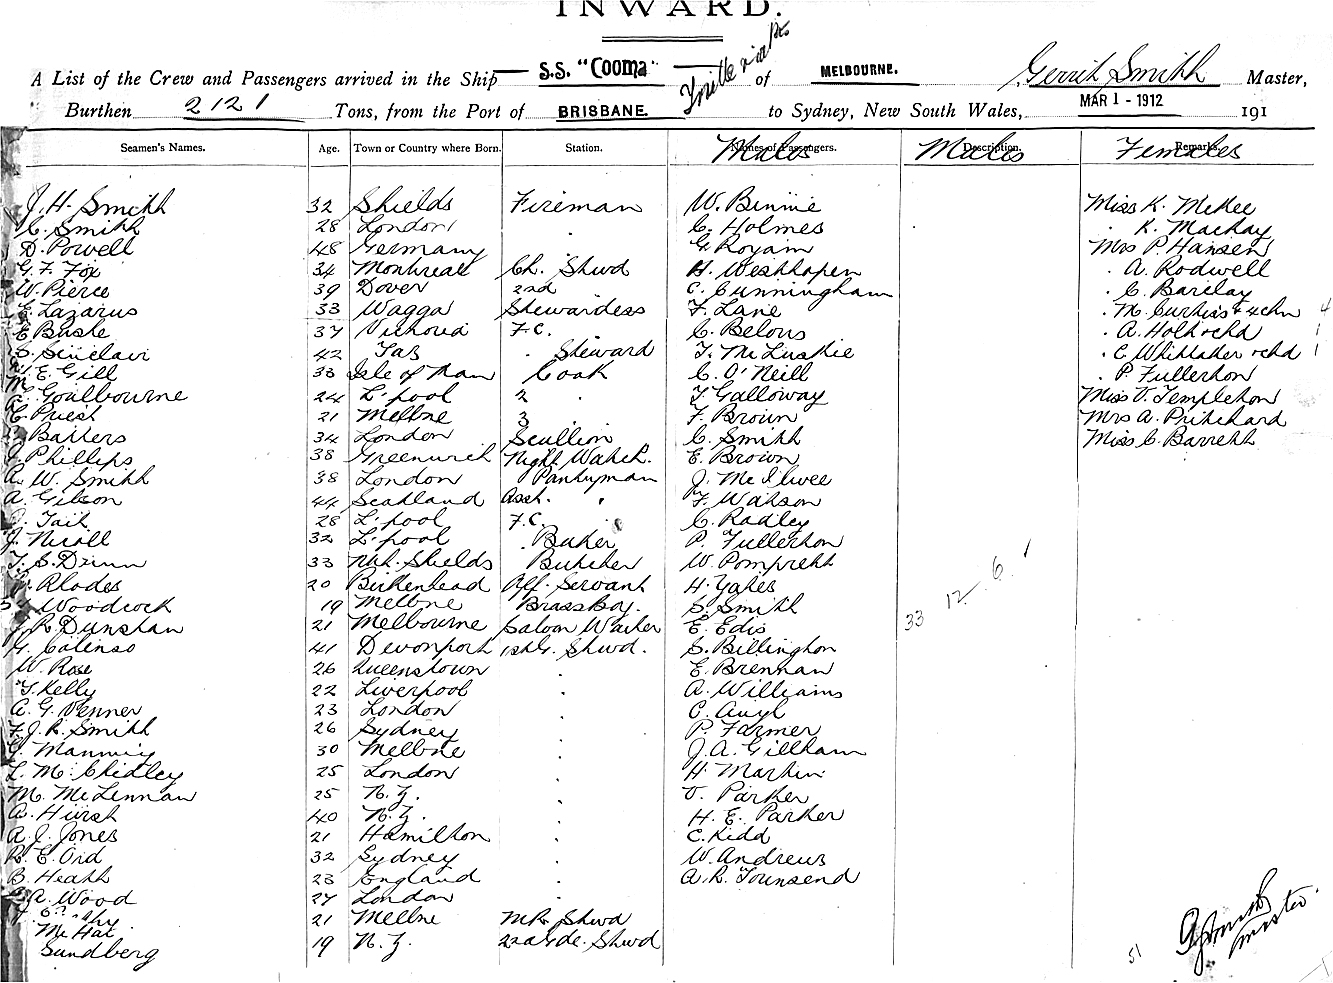 INWARD.
A List of the Crew and Passengers arrived in the Ship S.S. "Cooma" of MELBOURNE. Gerrit Smith Master,
Burthen 2121 Tons, from the Port of BRISBANE. to Sydney, New South Wales, MAR 1 - 1912 191
Seamen's Names. Age. Town or Country where Born. Station. Names of Passengers. Males Description. Males Remarks. Females
J. H. Smith 32 Shields Fireman W. Binnie Miss K. McKee
C. Smith 28 London " C. Holmes " K. Mackay
D. Powell 48 Germany G. Royam Mrs P. Hansen
G. F. Fox 34 Montreal Ch. Stwd H. Westhafen " A. Rodwell
W. Pierce 39 Dover 2nd C. Cunningham " C. Barclay
E. Lazarus 33 Wagga Stewardess F. Lane " M. Curtiss + 4 chn 4
E. Buske 37 Victoria F.C. C. Belous " A. Holt + chd 1
S. Sinclair 42 Tas " Steward T. McLuskie " C Whittaker + chd 1
E. Gill 33 Isle of Man Cook C. O'Neill " P. Fullerton
Goulbourne 24 L'pool 2 " T. Galloway Miss V. Templeton
C. Priest 21 Melbne 3 F. Brown Mrs A. Pritchard
Batters 34 London Scullion C. Smith Miss C. Barrett
J. Phillips 38 Greenwich Night Watch. E. Brown
A. W. Smith 38 London Pantryman J. McIlwee
A. Gibson 44 Scotland Asst. " F. Watson
J. Tait 28 L'pool F.C. C. Radley
J. Nicoll 32 L'pool " Baker P. Fullerton
T. S. Drinn 33 Nth. Shields Butcher W. Pomprett
Rhodes 20 Birkenhead Off. Servant H. Yates
Woodcock 19 Melbne Brass Boy. S. Smith
R. Dunstan 21 Melbourne Saloon Waiter E. Edis
G. Colenso 41 Devonport 1st G. Stwd. S. Billington
W. Rose 26 Queenstown " E. Brennan
T. Kelly 22 Liverpool " A. Williams
A. G. Venner 23 London " C.
J. R. Smith 26 Sydney " P. Farmer
Manning 30 Melbne " J. A. Gillham
L. M. Chidley 25 London " H. Martin
M. McLennan 25 N.Z. " V. Parker
A. Hurst 40 N.Z. " H. E. Parker
A. J. Jones 21 Hamilton " C. Kidd
R. E. Ord 32 Sydney " W. Andrews
B. Heath 23 England " A. R. Townsend
A. Wood 27 London "
21 Melbne M.R. Stwd
19 N.Z. 2nd Gde. Stwd
Sundberg
33 12 6 1
51